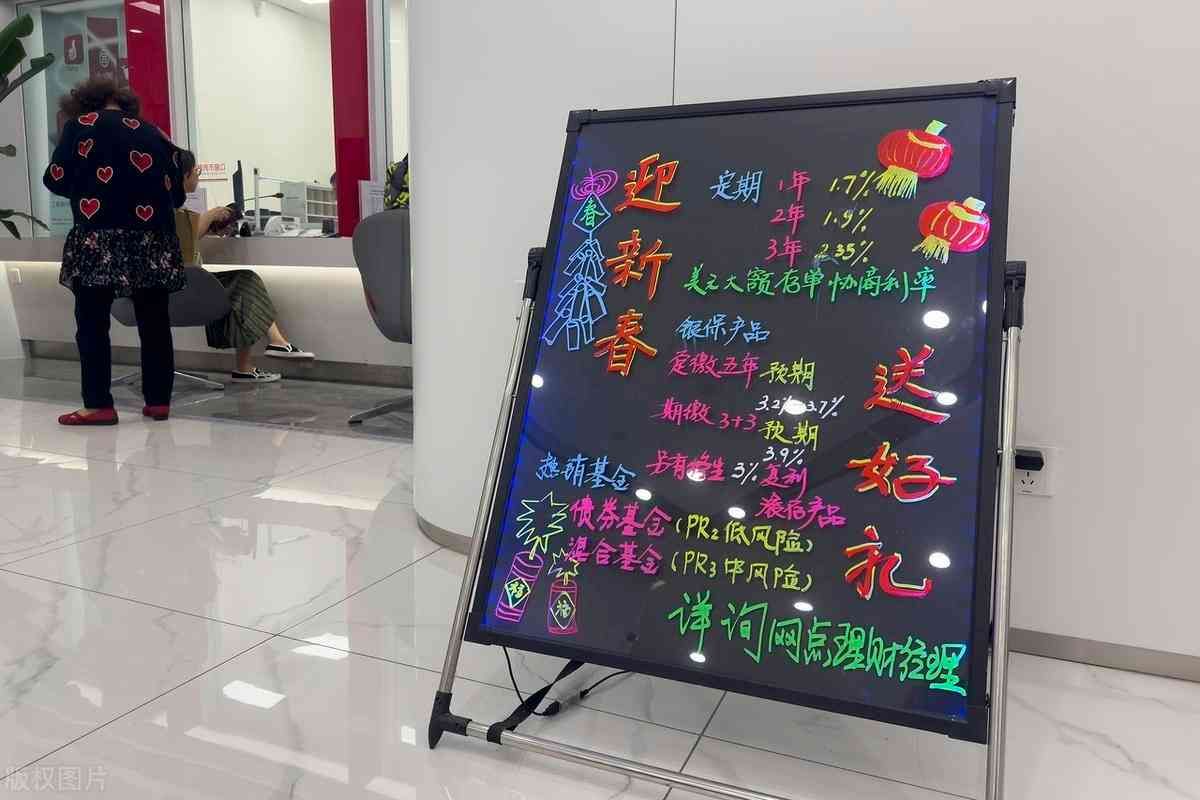 迎新春
定期 1年 1.7%
2年 1.9%
3年 2.35%
美元大额存单协商利率
银保产品
定缴五年预期
3.2%-3.7%
期缴3+3预期
3.9%
另有终生3%复利
滚存产品
热销基金
债券基金(PR2低风险)
混合基金(PR3中风险)
送好礼
详询网点理财经理
春
福
福
版权图片